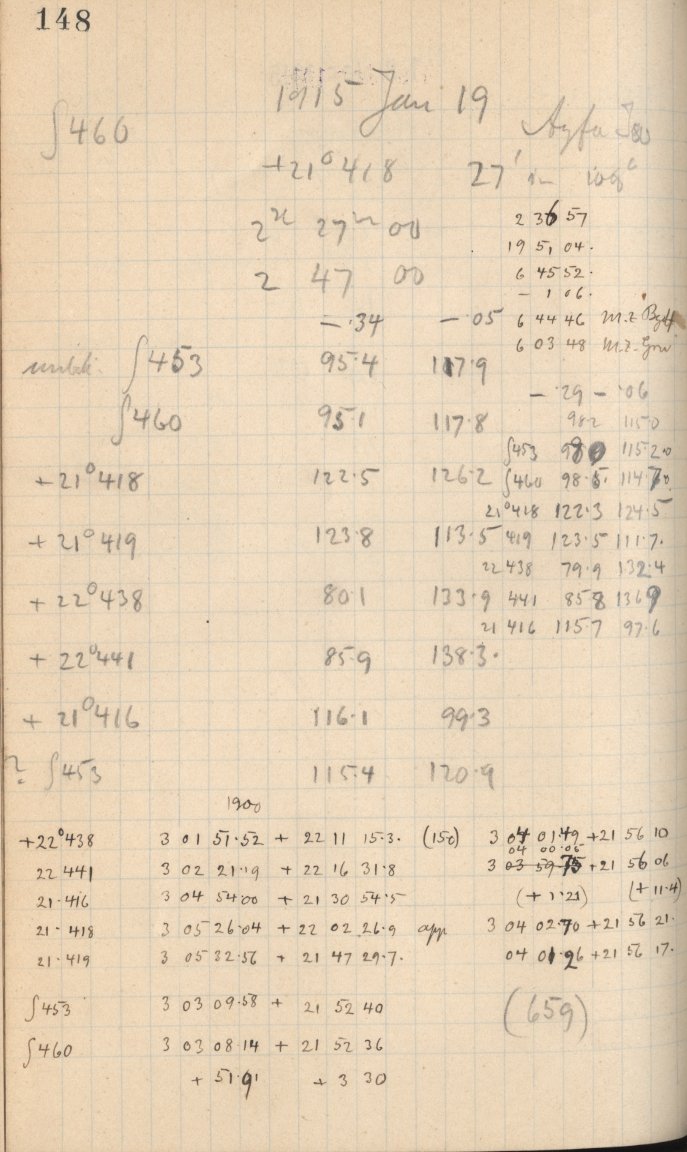 148
1915 Jan 19
∫460
Agfa Iso
+21°418 27' in 108°
2h 27m 00
2 47 00
2 36 57
19 51 04.
6 45 52.
- 1 06.
6 44 46 M.Z.
6 03 48 M.Z. Grw
-.34 -.05
∫453 95.4 117.9
∫460 95.1 117.8
+21°418 122.5 126.2
+21°419 123.8 113.5
+22°438 80.1 133.9
+22°441 85.9 138.3.
+21°416 116.1 99.3
? ∫453 115.4 120.9
-.29 -.06
98.2 115.0
∫453 98.0 115.20
∫460 98.5. 114.70
21°418 122.3 124.5
419 123.5 111.7.
22 438 79.9 132.4
441 85.8 136.9
21 416 115.7 97.6
1900
+22°438 3 01 51.52 + 22 11 15.3. (150) 3 04 01.49 +21 56 10
04 00.06
22 441 3 02 21.19 + 22 16 31.8 3 03 59.75 +21 56 06
21.416 3 04 54.00 + 21 30 54.5 (+1.21) (+11.4)
21.418 3 05 26.04 + 22 02 26.9 app 3 04 02.70 +21 56 21.
21.419 3 05 32.56 + 21 47 29.7. 04 01.26 +21 56 17.
∫453 3 03 09.58 + 21 52 40
(659)
∫460 3 03 08.14 + 21 52 36
+ 51.91 + 3 30